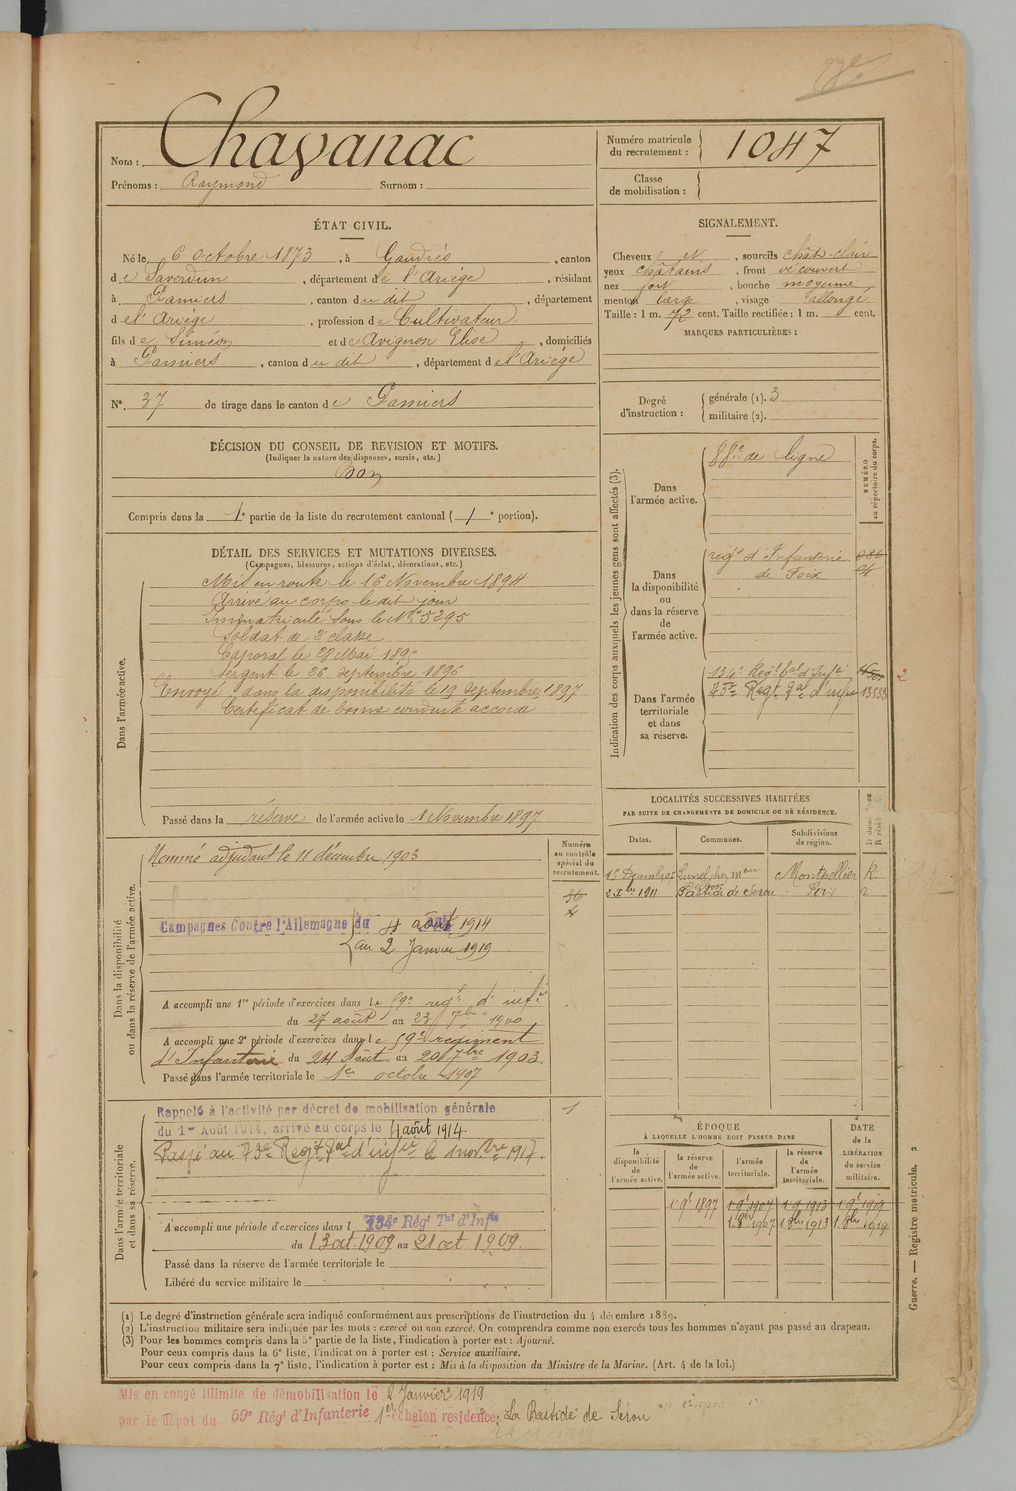 Nom : Chavanac
Prénoms : Raymond Surnom :
Numéro matricule du recrutement : 1047
Classe de mobilisation :
ÉTAT CIVIL.
Né le 6 Octobre 1873, à Gaudiès, canton
de Saverdun, département de l'Ariège, résidant
à Pamiers, canton du dit, département
de l'Ariège, profession de Cultivateur
fils de Siméon et de Avignon Elise, domiciliés
à Pamiers, canton du dit, département de l'Ariège
N° 37 de tirage dans le canton de Pamiers
DÉCISION DU CONSEIL DE REVISION ET MOTIFS.
(Indiquer la nature des dispenses, sursis, etc.)
Bon
Compris dans la 1e partie de la liste du recrutement cantonal (1e portion).
SIGNALEMENT.
Cheveux et, sourcils chât. clair
yeux châtains, front découvert
nez fort, bouche moyenne
menton large, visage allongé
Taille : 1 m. 72 cent. Taille rectifiée : 1 m. cent.
MARQUES PARTICULIÈRES :
Degré d'instruction : générale (1). 3
militaire (2).
DÉTAIL DES SERVICES ET MUTATIONS DIVERSES.
(Campagnes, blessures, actions d'éclat, décorations, etc.)
Dans l'armée active.
Mis en route le 16 Novembre 1894
Arrivé au corps le dit jour
Immatriculé sous le N° 5295
Soldat de 2e classe
Caporal le 28 Mai 1895
Sergent le 26 septembre 1896
Envoyé dans la disponibilité le 19 septembre 1897
Certificat de bonne conduite accordé
Passé dans la réserve de l'armée active le 1 Novembre 1897
Indication des corps auxquels les jeunes gens sont affectés (3).
NUMÉRO au répertoire du corps.
Dans l'armée active.
88e de ligne
Dans la disponibilité ou dans la réserve de l'armée active.
regt d'Infanterie
de Foix
Dans l'armée territoriale et dans sa réserve.
134e Regt tal d'Infie
73me Regt Tal d'infie 13553
2
LOCALITÉS SUCCESSIVES HABITÉES
PAR SUITE DE CHANGEMENTS DE DOMICILE OU DE RÉSIDENCE.
Dates. Communes. Subdivisions de région.
Montpellier R
1911 Bastide de Serou Foix
Dans la disponibilité ou dans la réserve de l'armée active.
Numéro au contrôle spécial du recrutement.
Nommé adjudant le 11 décembre 1903
Campagnes Contre l'Allemagne du 4 août 1914
au 2 Janvier 1919
A accompli une 1re période d'exercices dans le 59e regt d'infie
du 27 août au 23 7bre 1900
A accompli une 2e période d'exercices dans le 59e regiment
d'Infanterie du 24 Août au 20 7bre 1903.
Passé dans l'armée territoriale le 1er octobre 1907
Dans l'armée territoriale et dans sa réserve.
Rappelé à l'activité par décret de mobilisation générale
du 1er Août 1914, arrivé au corps le 4 août 1914.
1
Passé au 73e Regt Tal d'infie le 1 novbre 1917.
A accompli une période d'exercices dans l 134e Régt Tal d'Infie
du 13 oct. 1909 au 21 oct 1909.
Passé dans la réserve de l'armée territoriale le
Libéré du service militaire le
ÉPOQUE
À LAQUELLE L'HOMME DOIT PASSER DANS
DATE de la LIBÉRATION du service militaire.
la disponibilité de l'armée active. la réserve de l'armée active. l'armée territoriale. la réserve de l'armée territoriale.
1 9e 1897 1 9e 1907 1 9e 1913 1 9e 1919
1 8bre 1907 1 8bre 1913 1 8bre 1919
Guerre. — Registre matricule. 2
(1) Le degré d'instruction générale sera indiqué conformément aux prescriptions de l'instruction du 4 décembre 1889.
(2) L'instruction militaire sera indiquée par les mots : exercé ou non exercé. On comprendra comme non exercés tous les hommes n'ayant pas passé au drapeau.
(3) Pour les hommes compris dans la 5e partie de la liste, l'indication à porter est : Ajourné.
Pour ceux compris dans la 6e liste, l'indication à porter est : Service auxiliaire.
Pour ceux compris dans la 7e liste, l'indication à porter est : Mis à la disposition du Ministre de la Marine. (Art. 4 de la loi.)
Mis en congé illimité de démobilisation le 2 Janvier 1919
par le dépôt du 59e Régt d'Infanterie 1er échelon residence, La Bastide de Sérou